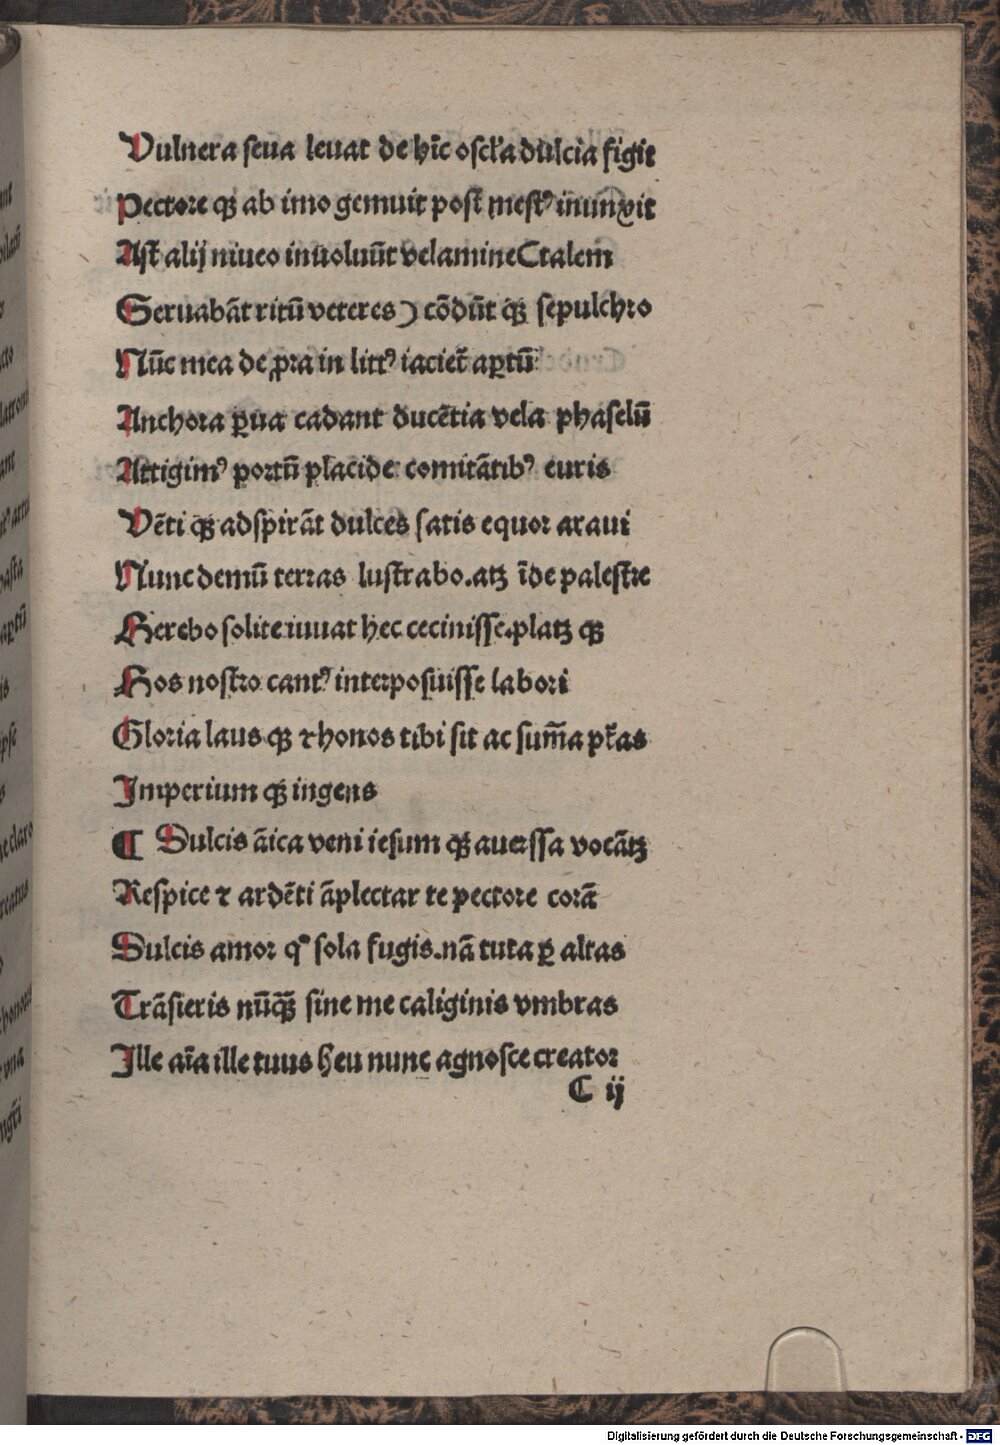 Vulnera seua leuat de hīc oscl'a dulcia figit
Pectore qꝫ ab imo gemuit post mestꝰ inunxit
Ast alij niueo inuoluūt velamine (talem
Seruabāt ritū veteres) cōdūt qꝫ sepulchro
Nūc mea de ꝓra in littꝰ iaciet̄ aꝑtū
Anchora ꝑua cadant ducētia vela phaselū
Attigimꝰ portū placide comitātibꝰ euris
Vēti qꝫ adspirāt dulces satis equor araui
Nunc demū terras lustrabo. atꝫ īde palestre
Herebo solite iuuat hec cecinisse. platꝫ qꝫ
Hos nostro cantꝰ interposuisse labori
Gloria laus qꝫ ⁊ honos tibi sit ac sum̄a pt̄as
Imperium qꝫ ingens
¶ Dulcis āica veni iesum qꝫ auerssa vocātꝫ
Respice ⁊ ardēti āplectar te pectore corā
Dulcis amor qͦ sola fugis. nā tuta ꝑ altas
Trāsieris nūqꝫ̄ sine me caliginis vmbras
Ille aīa ille tuus heu nunc agnosce creator
C ij
Digitalisierung gefördert durch die Deutsche Forschungsgemeinschaft - DFG